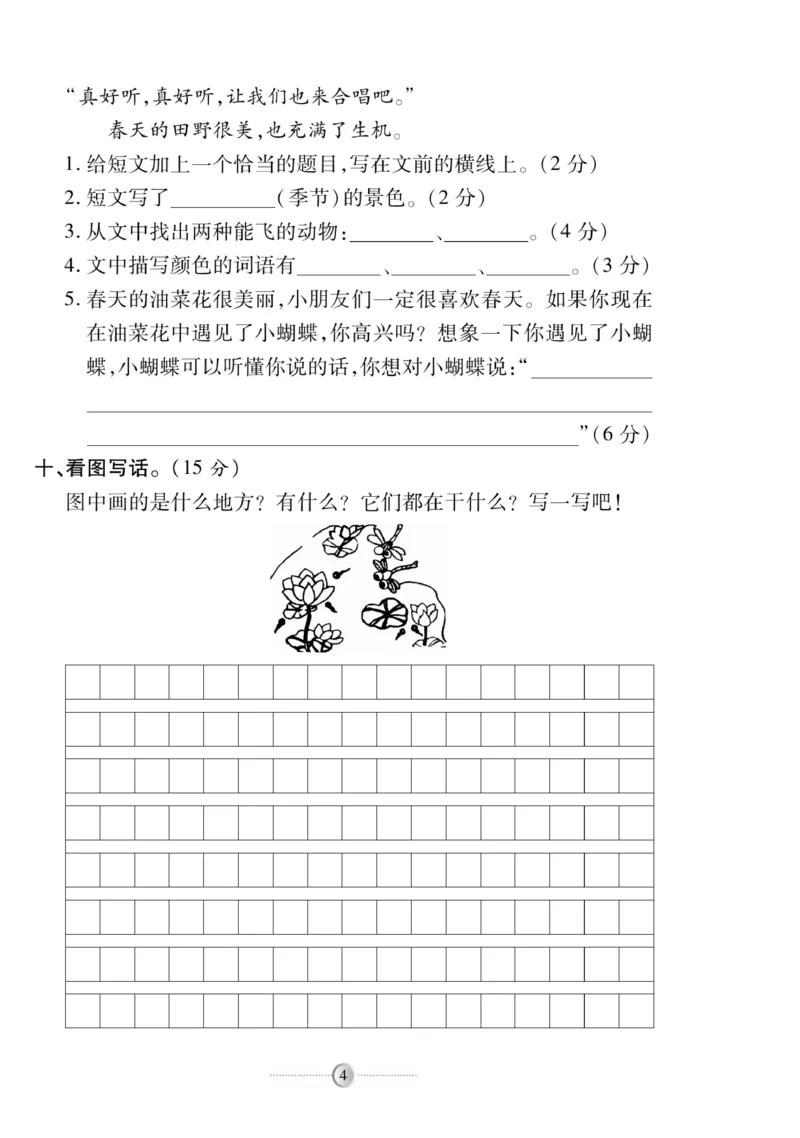 “真好听,真好听,让我们也来合唱吧。”
春天的田野很美,也充满了生机。
1. 给短文加上一个恰当的题目,写在文前的横线上。(2 分)
2. 短文写了__________(季节)的景色。(2 分)
3. 从文中找出两种能飞的动物:________、________。(4 分)
4. 文中描写颜色的词语有________、________、________。(3 分)
5. 春天的油菜花很美丽,小朋友们一定很喜欢春天。如果你现在
在油菜花中遇见了小蝴蝶,你高兴吗? 想象一下你遇见了小蝴
蝶,小蝴蝶可以听懂你说的话,你想对小蝴蝶说:“____________
”(6 分)
十、看图写话。(15 分)
图中画的是什么地方? 有什么? 它们都在干什么? 写一写吧!
4